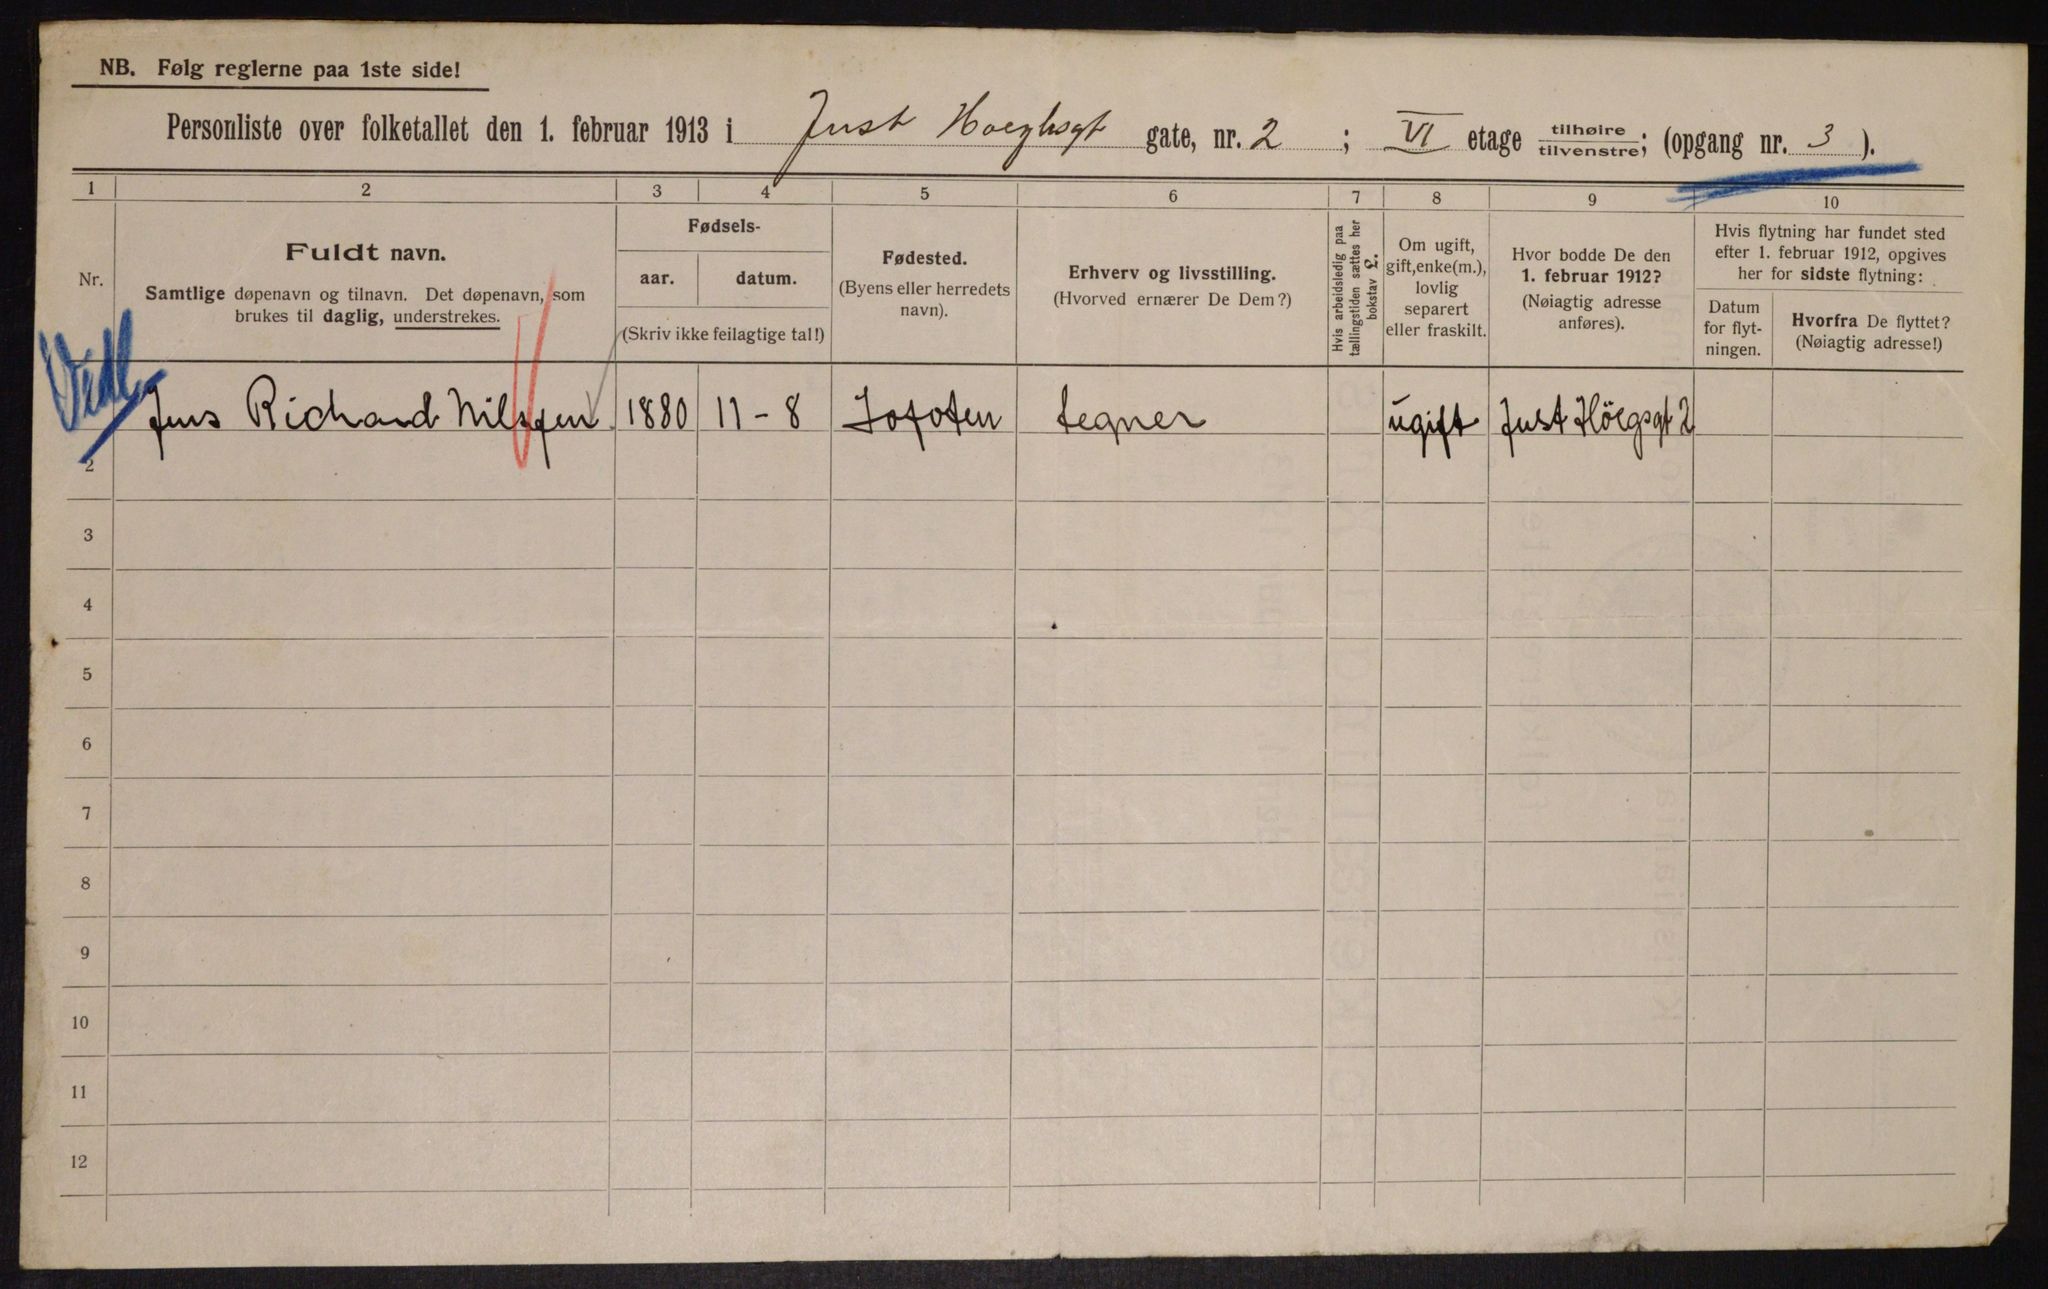 NB. Følg reglerne paa 1ste side!
Personliste over folketallet den 1. februar 1913 i Just Hoeghsgt gate, nr. 2 ; VI etage tilhøire/tilvenstre; (opgang nr. 3 ).
1 2 3 4 5 6 7 8 9 10
Nr.
Fuldt navn.
Samtlige døpenavn og tilnavn. Det døpenavn, som
brukes til daglig, understrekes.
Fødsels-
aar. datum.
(Skriv ikke feilagtige tal!)
Fødested.
(Byens eller herredets
navn).
Erhverv og livsstilling.
(Hvorved ernærer De Dem?)
Hvis arbeidsledig paa
tællingstiden sættes her
bokstav L.
Om ugift,
gift, enke(m.),
lovlig
separert
eller fraskilt.
Hvor bodde De den
1. februar 1912?
(Nøiagtig adresse
anføres).
Hvis flytning har fundet sted
efter 1. februar 1912, opgives
her for sidste flytning:
Datum
for flyt-
ningen.
Hvorfra De flyttet?
(Nøiagtig adresse!)
Jens Richard Nilssen 1880 11-8 Lofoten tegner ugift Just Höegsgt 2
2
3
4
5
6
7
8
9
10
11
12